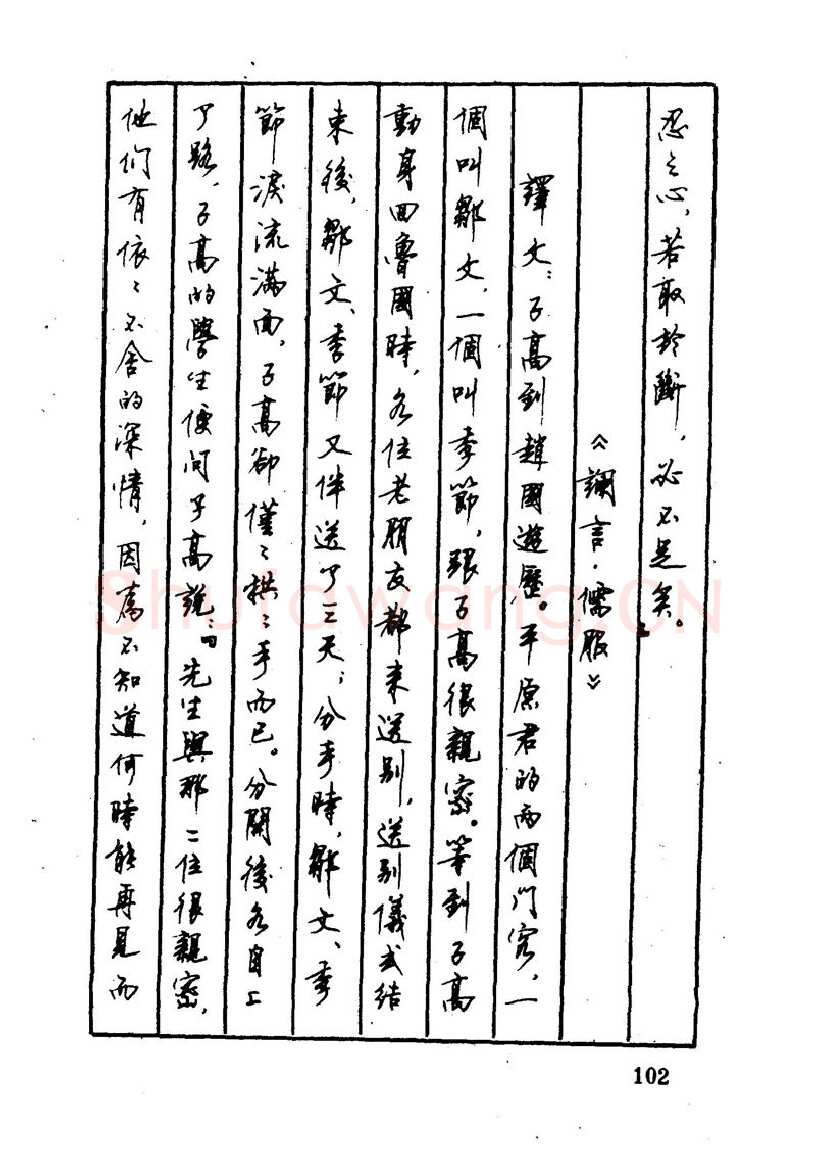 忍之心，若取於斷，必不足矣。
《讕言·儒服》
譯文：子高到趙國遊歷。平原君的兩個门客，一
個叫鄒文，一個叫季節，跟子高很親密。等到子高
動身回魯國時，各位老朋友都来送别，送别儀式结
束後，鄒文、季節又伴送了三天；分手時，鄒文、季
節淚流滿面，子高卻僅〻拱〻手而已。分開後各自上
了路，子高的學生便问子高説：“先生與那二位很親密，
他们有依〻不舍的深情，因爲不知道何時能再見而
102
Shufawang.CN